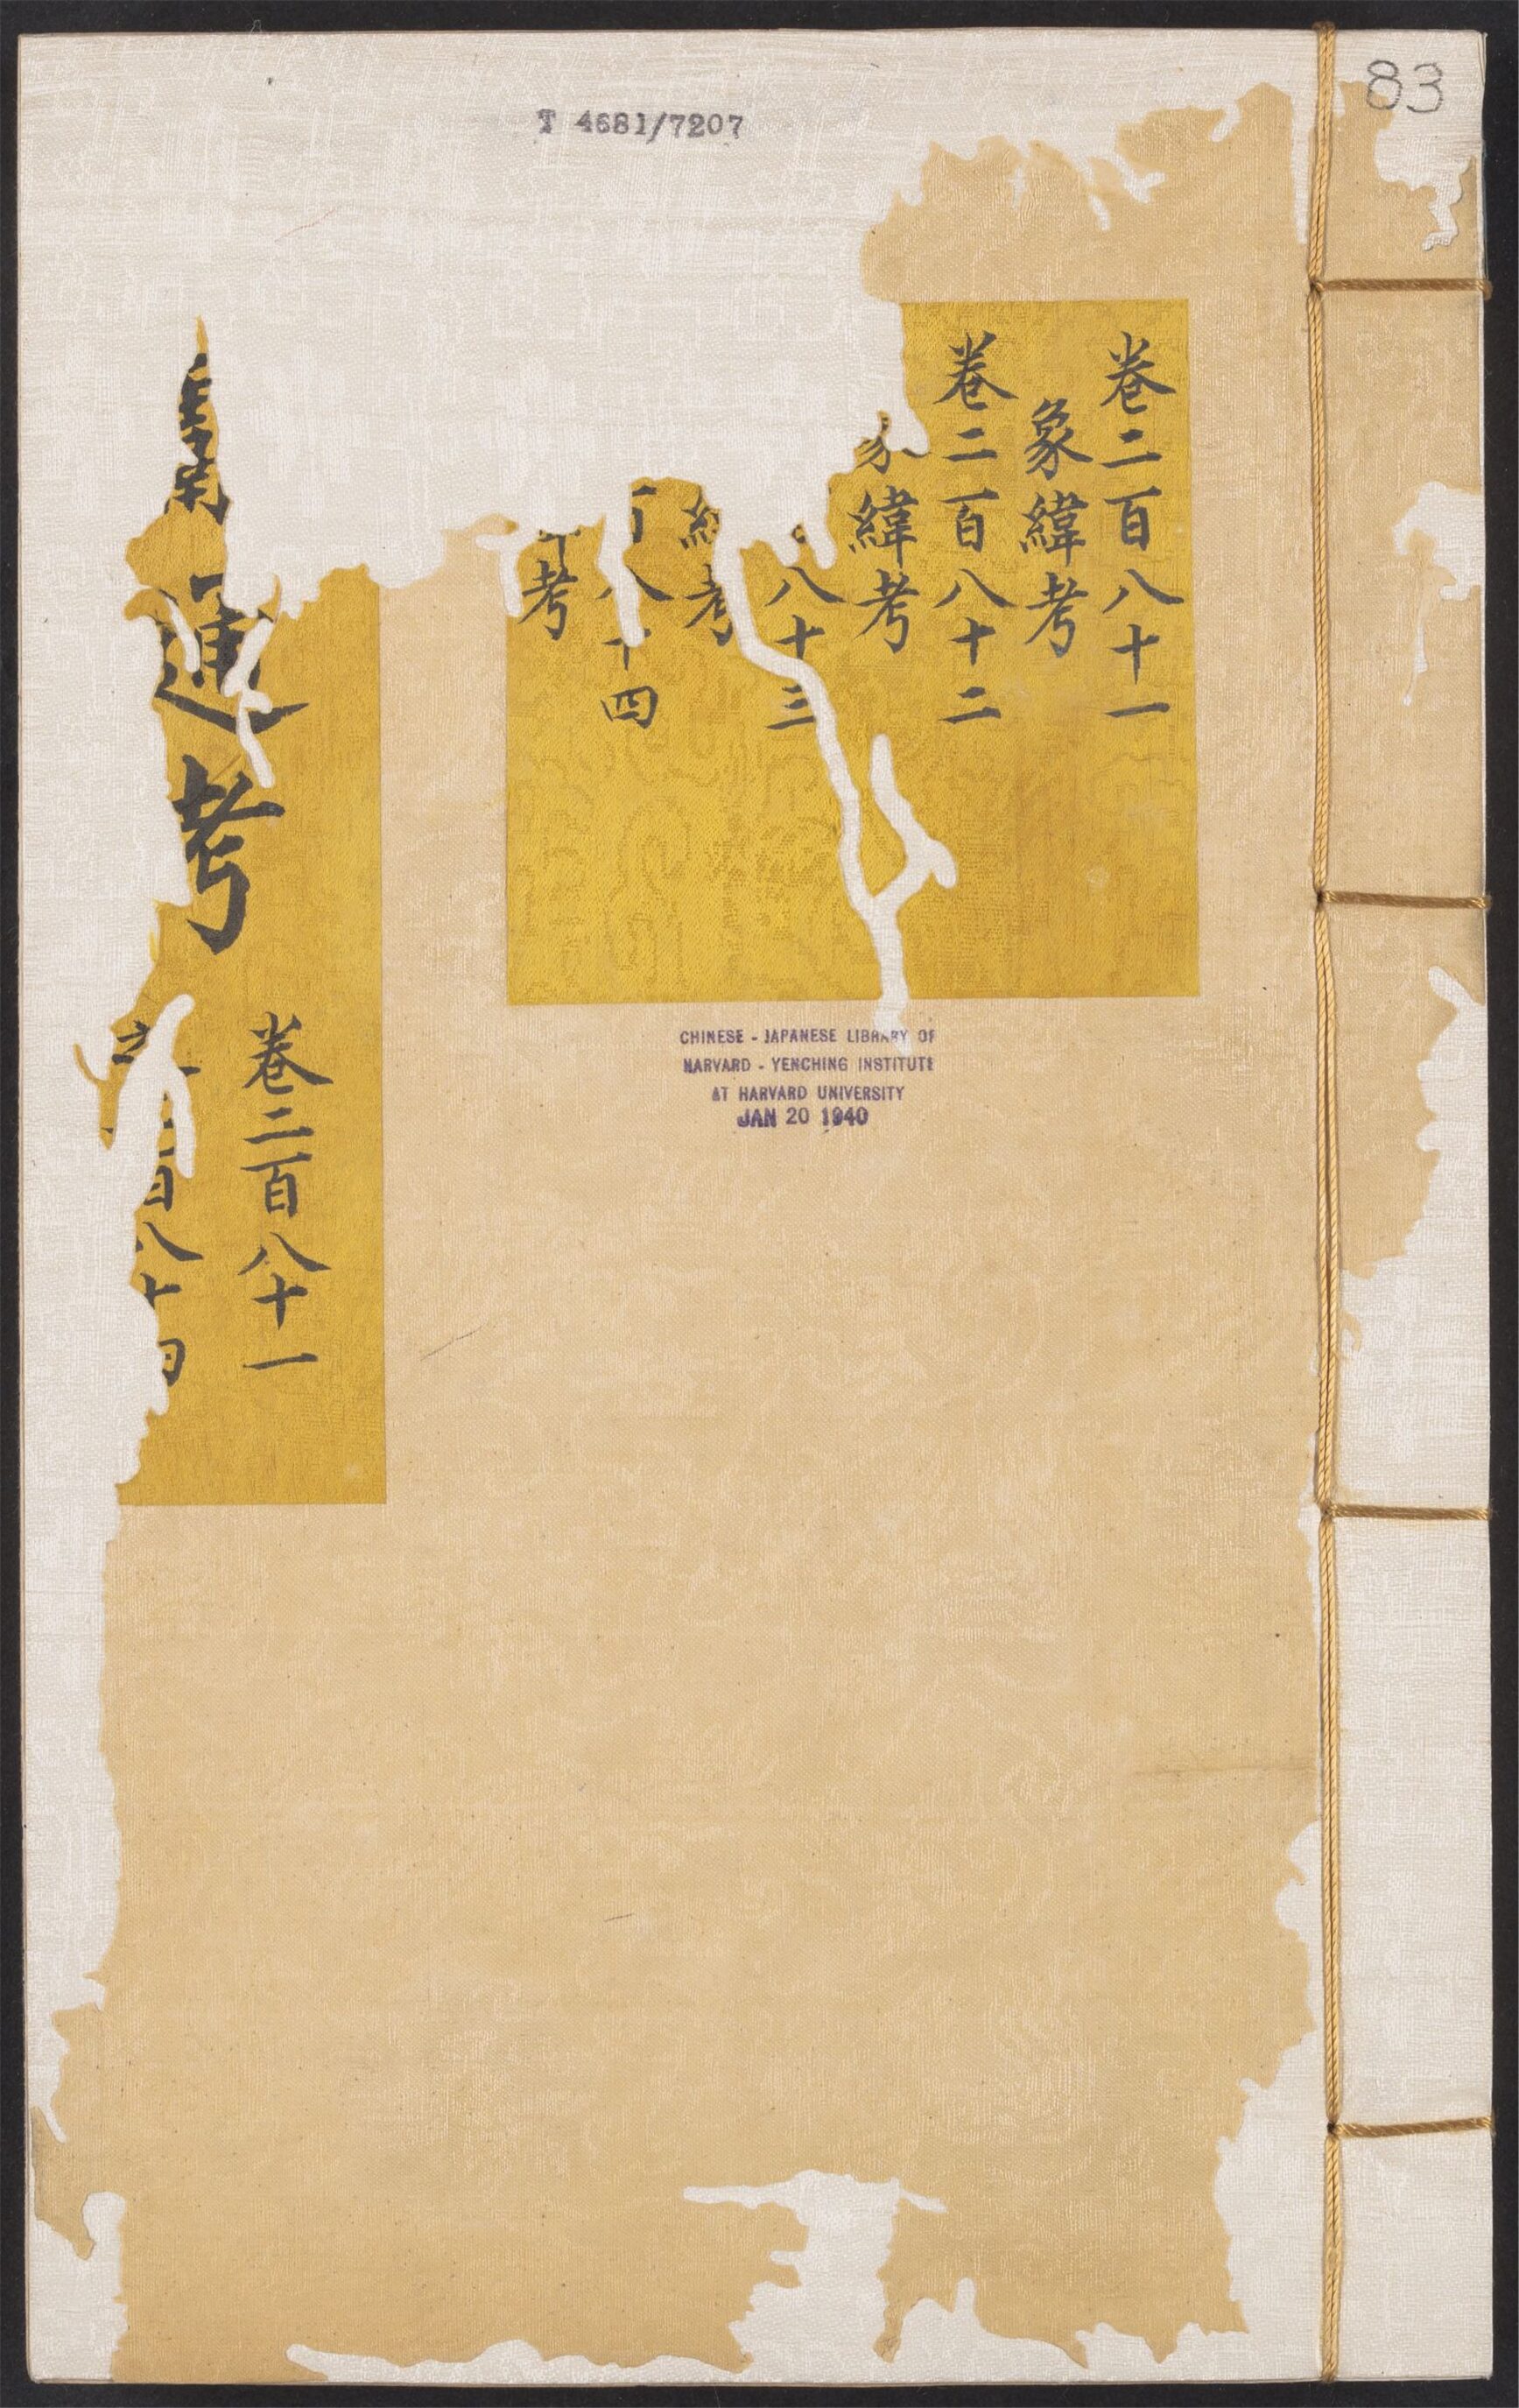 83
T 4681/7207
卷二百八十一
象緯考
卷二百八十二
緯考
八十三
考
八十四
考
CHINESE - JAPANESE LIBRARY OF
HARVARD - YENCHING INSTITUTE
AT HARVARD UNIVERSITY
JAN 20 1940
通考
卷二百八十一
百八十四